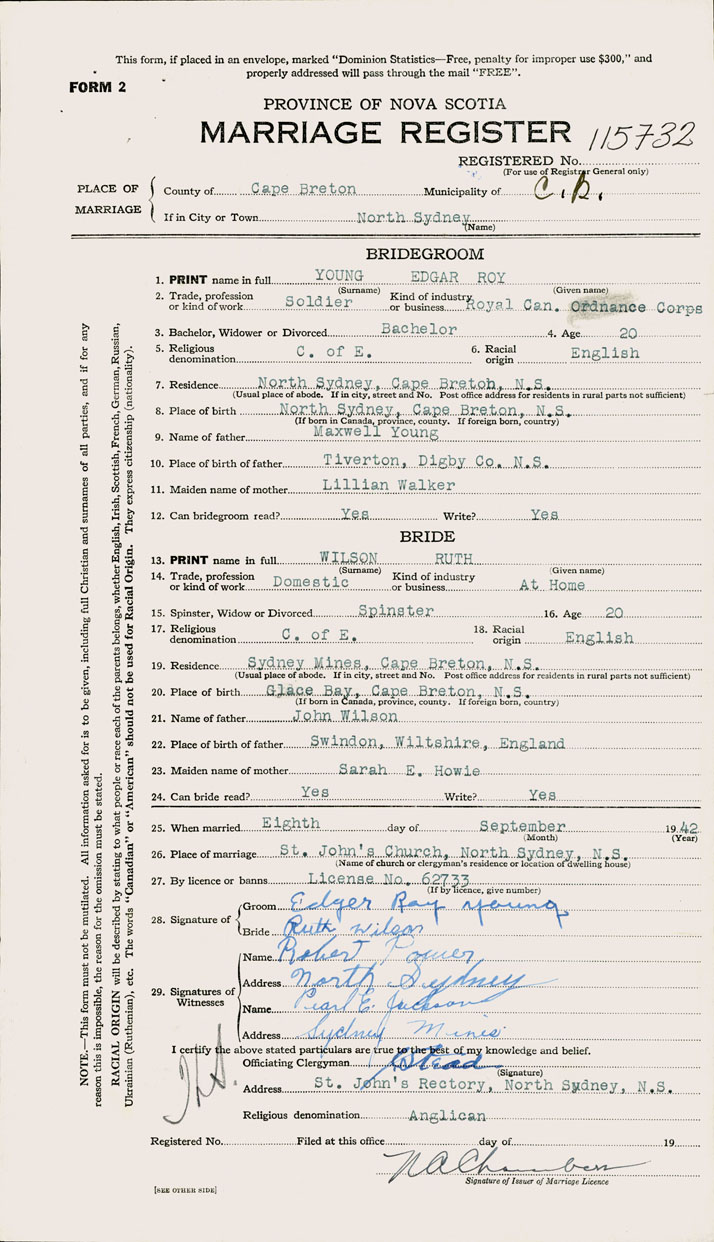 This form, if placed in an envelope, marked "Dominion Statistics—Free, penalty for improper use $300," and
properly addressed will pass through the mail "FREE".
FORM 2
PROVINCE OF NOVA SCOTIA
MARRIAGE REGISTER 115732
REGISTERED No.
(For use of Registrar General only)
PLACE OF MARRIAGE
County of Cape Breton Municipality of C.B.
If in City or Town North Sydney
(Name)
BRIDEGROOM
1. PRINT name in full YOUNG EDGAR ROY
(Surname) (Given name)
2. Trade, profession or kind of work Soldier Kind of industry or business Royal Can. Ordnance Corps
3. Bachelor, Widower or Divorced Bachelor 4. Age 20
5. Religious denomination C. of E. 6. Racial origin English
7. Residence North Sydney, Cape Breton, N.S.
(Usual place of abode. If in city, street and No. Post office address for residents in rural parts not sufficient)
8. Place of birth North Sydney, Cape Breton, N.S.
(If born in Canada, province, county. If foreign born, country)
9. Name of father Maxwell Young
10. Place of birth of father Tiverton, Digby Co. N.S.
11. Maiden name of mother Lillian Walker
12. Can bridegroom read? Yes Write? Yes
BRIDE
13. PRINT name in full WILSON RUTH
(Surname) (Given name)
14. Trade, profession or kind of work Domestic Kind of industry or business At Home
15. Spinster, Widow or Divorced Spinster 16. Age 20
17. Religious denomination C. of E. 18. Racial origin English
19. Residence Sydney Mines, Cape Breton, N.S.
(Usual place of abode. If in city, street and No. Post office address for residents in rural parts not sufficient)
20. Place of birth Glace Bay, Cape Breton, N.S.
(If born in Canada, province, county. If foreign born, country)
21. Name of father John Wilson
22. Place of birth of father Swindon, Wiltshire, England
23. Maiden name of mother Sarah E. Howie
24. Can bride read? Yes Write? Yes
25. When married Eighth day of September 1942
(Month) (Year)
26. Place of marriage St. John's Church, North Sydney, N.S.
(Name of church or clergyman's residence or location of dwelling house)
27. By licence or banns License No. 62733
(If by licence, give number)
28. Signature of
Groom Edger Roy Young
Bride Ruth Wilson
29. Signatures of Witnesses
Name Robert Power
Address North Sydney
Name Pearl E. Jackson
Address Sydney Mines
I certify the above stated particulars are true to the best of my knowledge and belief.
Officiating Clergyman
(Signature)
Address St. John's Rectory, North Sydney, N.S.
Religious denomination Anglican
Registered No. Filed at this office day of 19
N A Chambers
Signature of Issuer of Marriage Licence
[SEE OTHER SIDE]
NOTE.—This form must not be mutilated. All information asked for is to be given, including full Christian and surnames of all parties, and if for any
reason this is impossible, the reason for the omission must be stated.
RACIAL ORIGIN will be described by stating to what people or race each of the parents belongs, whether English, Irish, Scottish, French, German, Russian,
Ukrainian (Ruthenian), etc. The words "Canadian" or "American" should not be used for Racial Origin. They express citizenship (nationality).